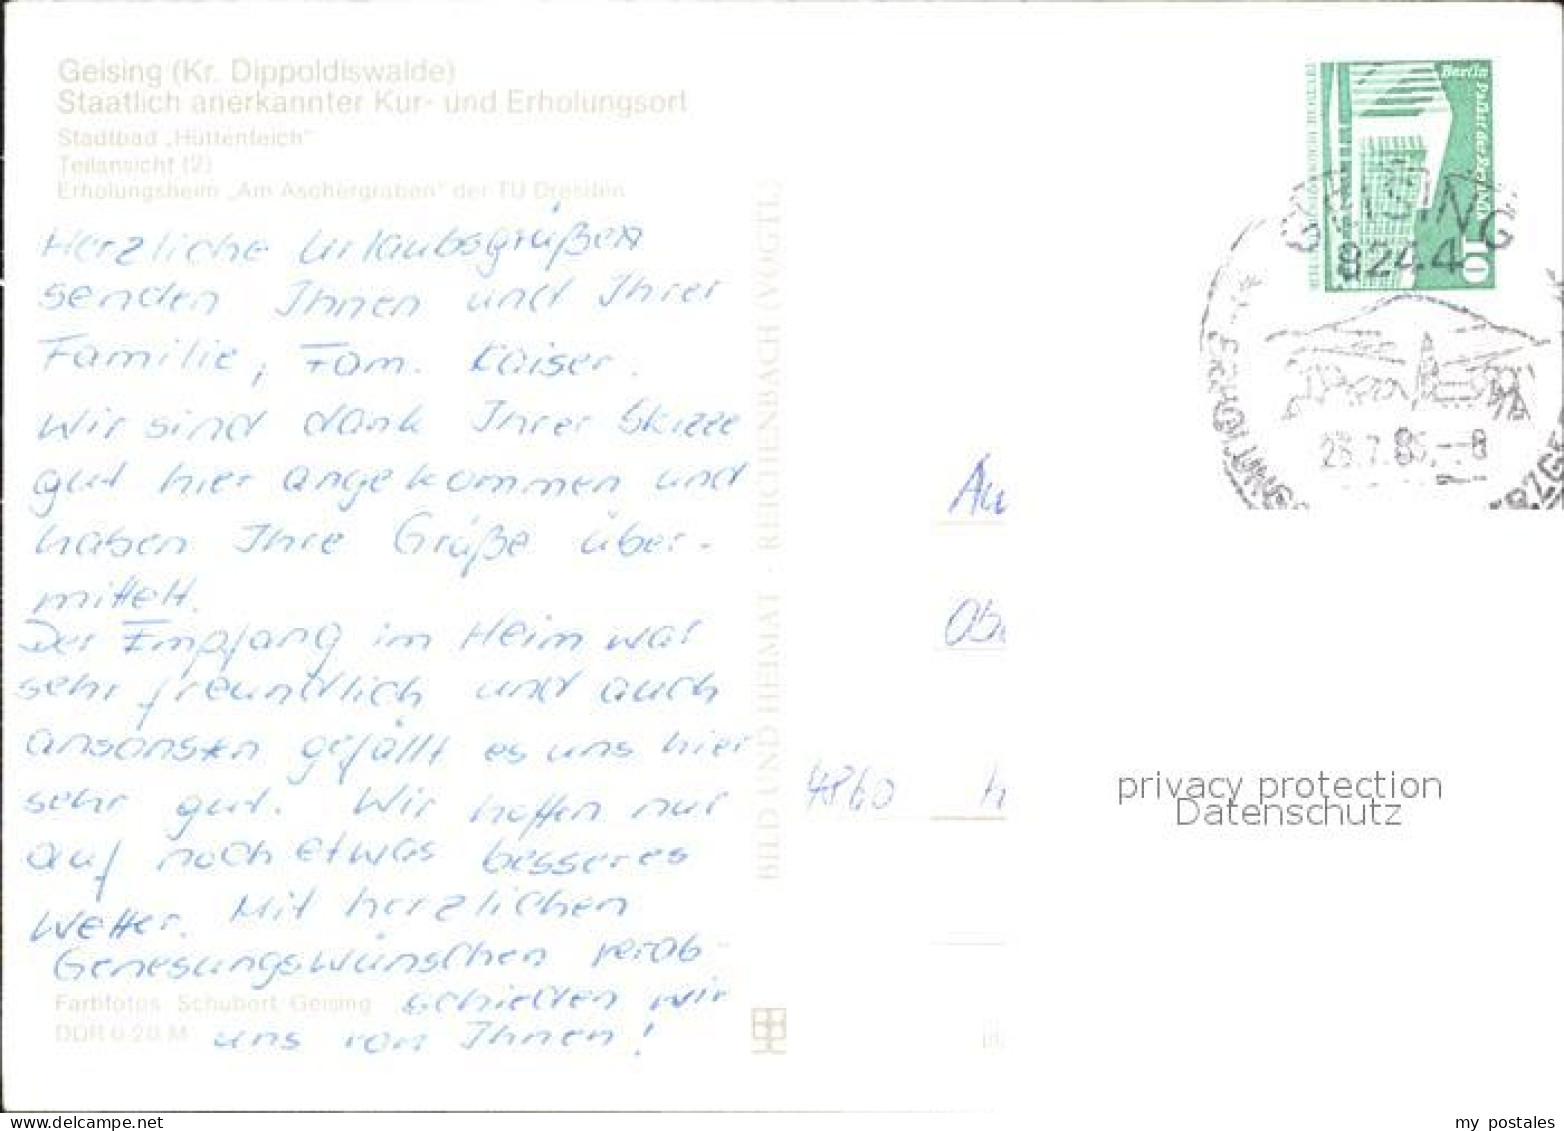 Geising (Kr. Dippoldiswalde)
Staatlich anerkannter Kur- und Erholungsort
Stadtbad „Hüttenteich“
Teilansicht (2)
Erholungsheim „Am Aschergraben“ der TU Dresden
Herzliche Urlaubsgrüßen
senden Ihnen und Ihrer
Familie, Fam. Kaiser.
Wir sind dank Ihrer Skizze
gut hier angekommen und
haben Ihre Grüße über-
mittelt.
Der Empfang im Heim war
sehr freundlich und auch
ansonsten gefällt es uns hier
sehr gut. Wir hoffen nur
auf noch etwas besseres
Wetter. Mit herzlichen
Genesungswünschen verab-
schieden wir
uns von Ihnen!
Farbfotos Schubert Geising
DDR 0,20 M
BILD UND HEIMAT · REICHENBACH (VOGTL)
Berlin Palast der Republik
10
GEISING
8244
23.7.85.--8
4860
privacy protection
Datenschutz
my postales